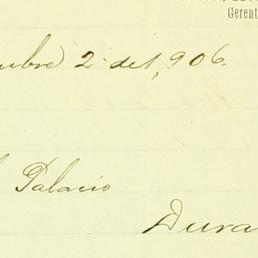 Gerent
ubre 2 del 1,906.
l Palacio
Dura